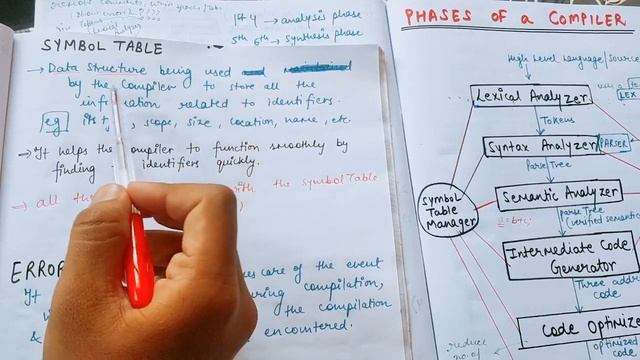 1st 4 → analysis phase
5th 6th → synthesis phase
SYMBOL TABLE
→ Data Structure being used
by the Compiler to store all the
information related to identifiers.
eg its , scope, size, location, name, etc.
→ It helps the compiler to function smoothly by
finding identifiers quickly.
→ all the with the symbol Table
ERRO
es care of the event
It uring compilation,
the compilation
& encountered.
PHASES OF A COMPILER
High Level Language/Source
Lexical Analyzer
LEX
Tokens
Syntax Analyzer
PARSER
Parse Tree
Semantic Analyzer
Symbol
Table
Manager
a=b+c;
parse Tree
(verified semantic
Intermediate Code
Generator
Three addr
code
Code Optimize
reduce
no. of
optimized
code